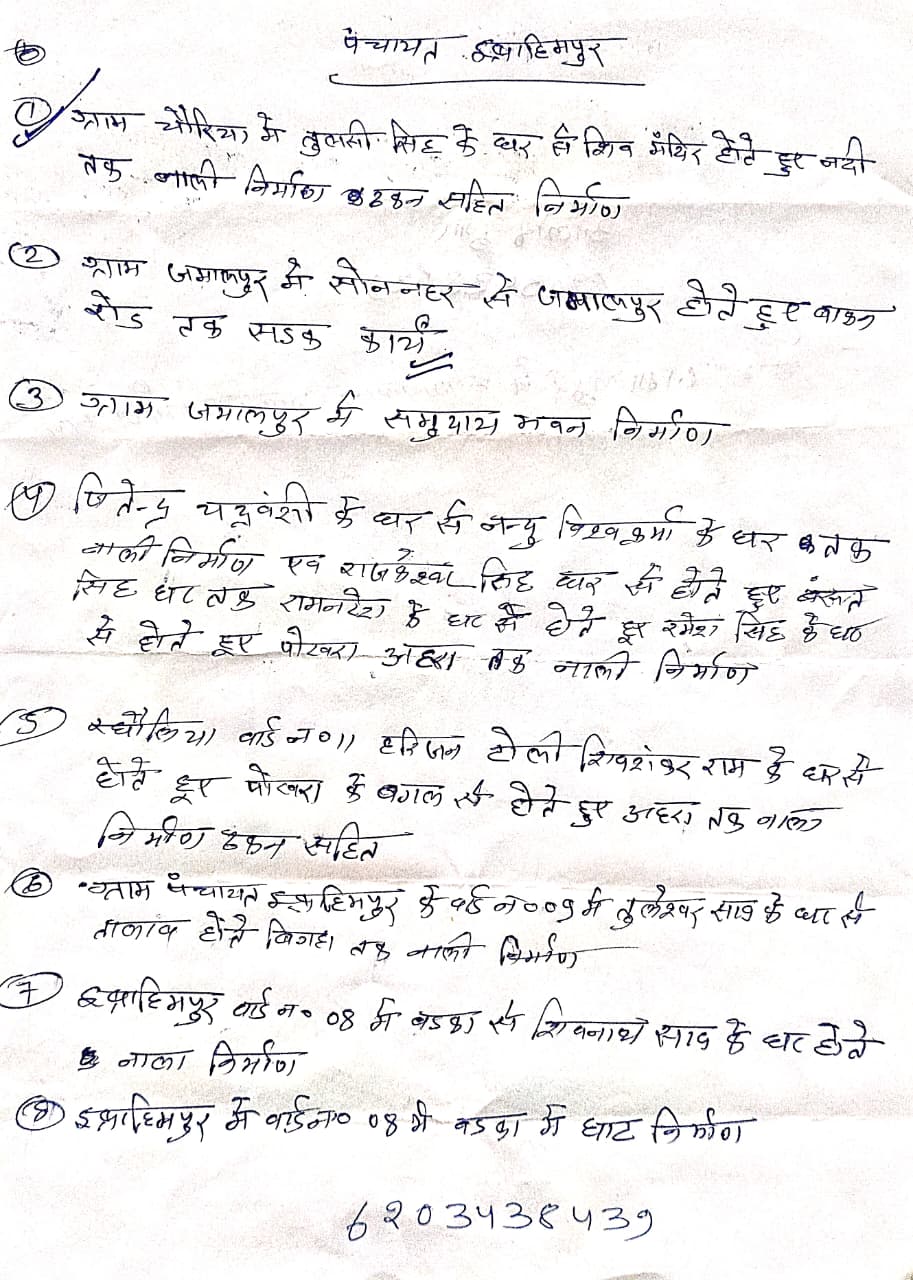 पंचायत इब्राहिमपुर
① ग्राम चौरिया में तुलसी सिंह के घर से शिव मंदिर होते हुए नदी
तक नाली निर्माण ढकन सहित निर्माण
② ग्राम जमालपुर में सोननहर से जमालपुर होते हुए
रोड तक सडक कार्य
③ ग्राम जमालपुर में समुदाय भवन निर्माण
④ जितेन्द्र चद्रवंशी के घर से नन्दु विश्वकर्मा के घर तक
नाली निर्माण एवं सिंह घर से होते हुए
सिंह घर तक रामनरेश के घर से होते हुए रमेश सिंह के घर
से होते हुए पोखरा अहरा तक नाली निर्माण
5 वार्ड न० 11 हरिजन टोली शिवशंकर राम के घर से
होते हुए पोखरा के बगल से होते हुए अहरा तक नाला
निर्माण ढकन सहित
⑥ ग्राम पंचायत इब्राहिमपुर के वार्ड न० 09 में तुलेश्वर साव के घर से
तालाब होते बिगहा तक नाली निर्माण
7 इब्राहिमपुर वार्ड न० 08 में बडका से शिवनाथ साव के घर होते
नाला निर्माण
⑧ इब्राहिमपुर में वार्ड न० 08 में बडका में घाट निर्माण
6203438439